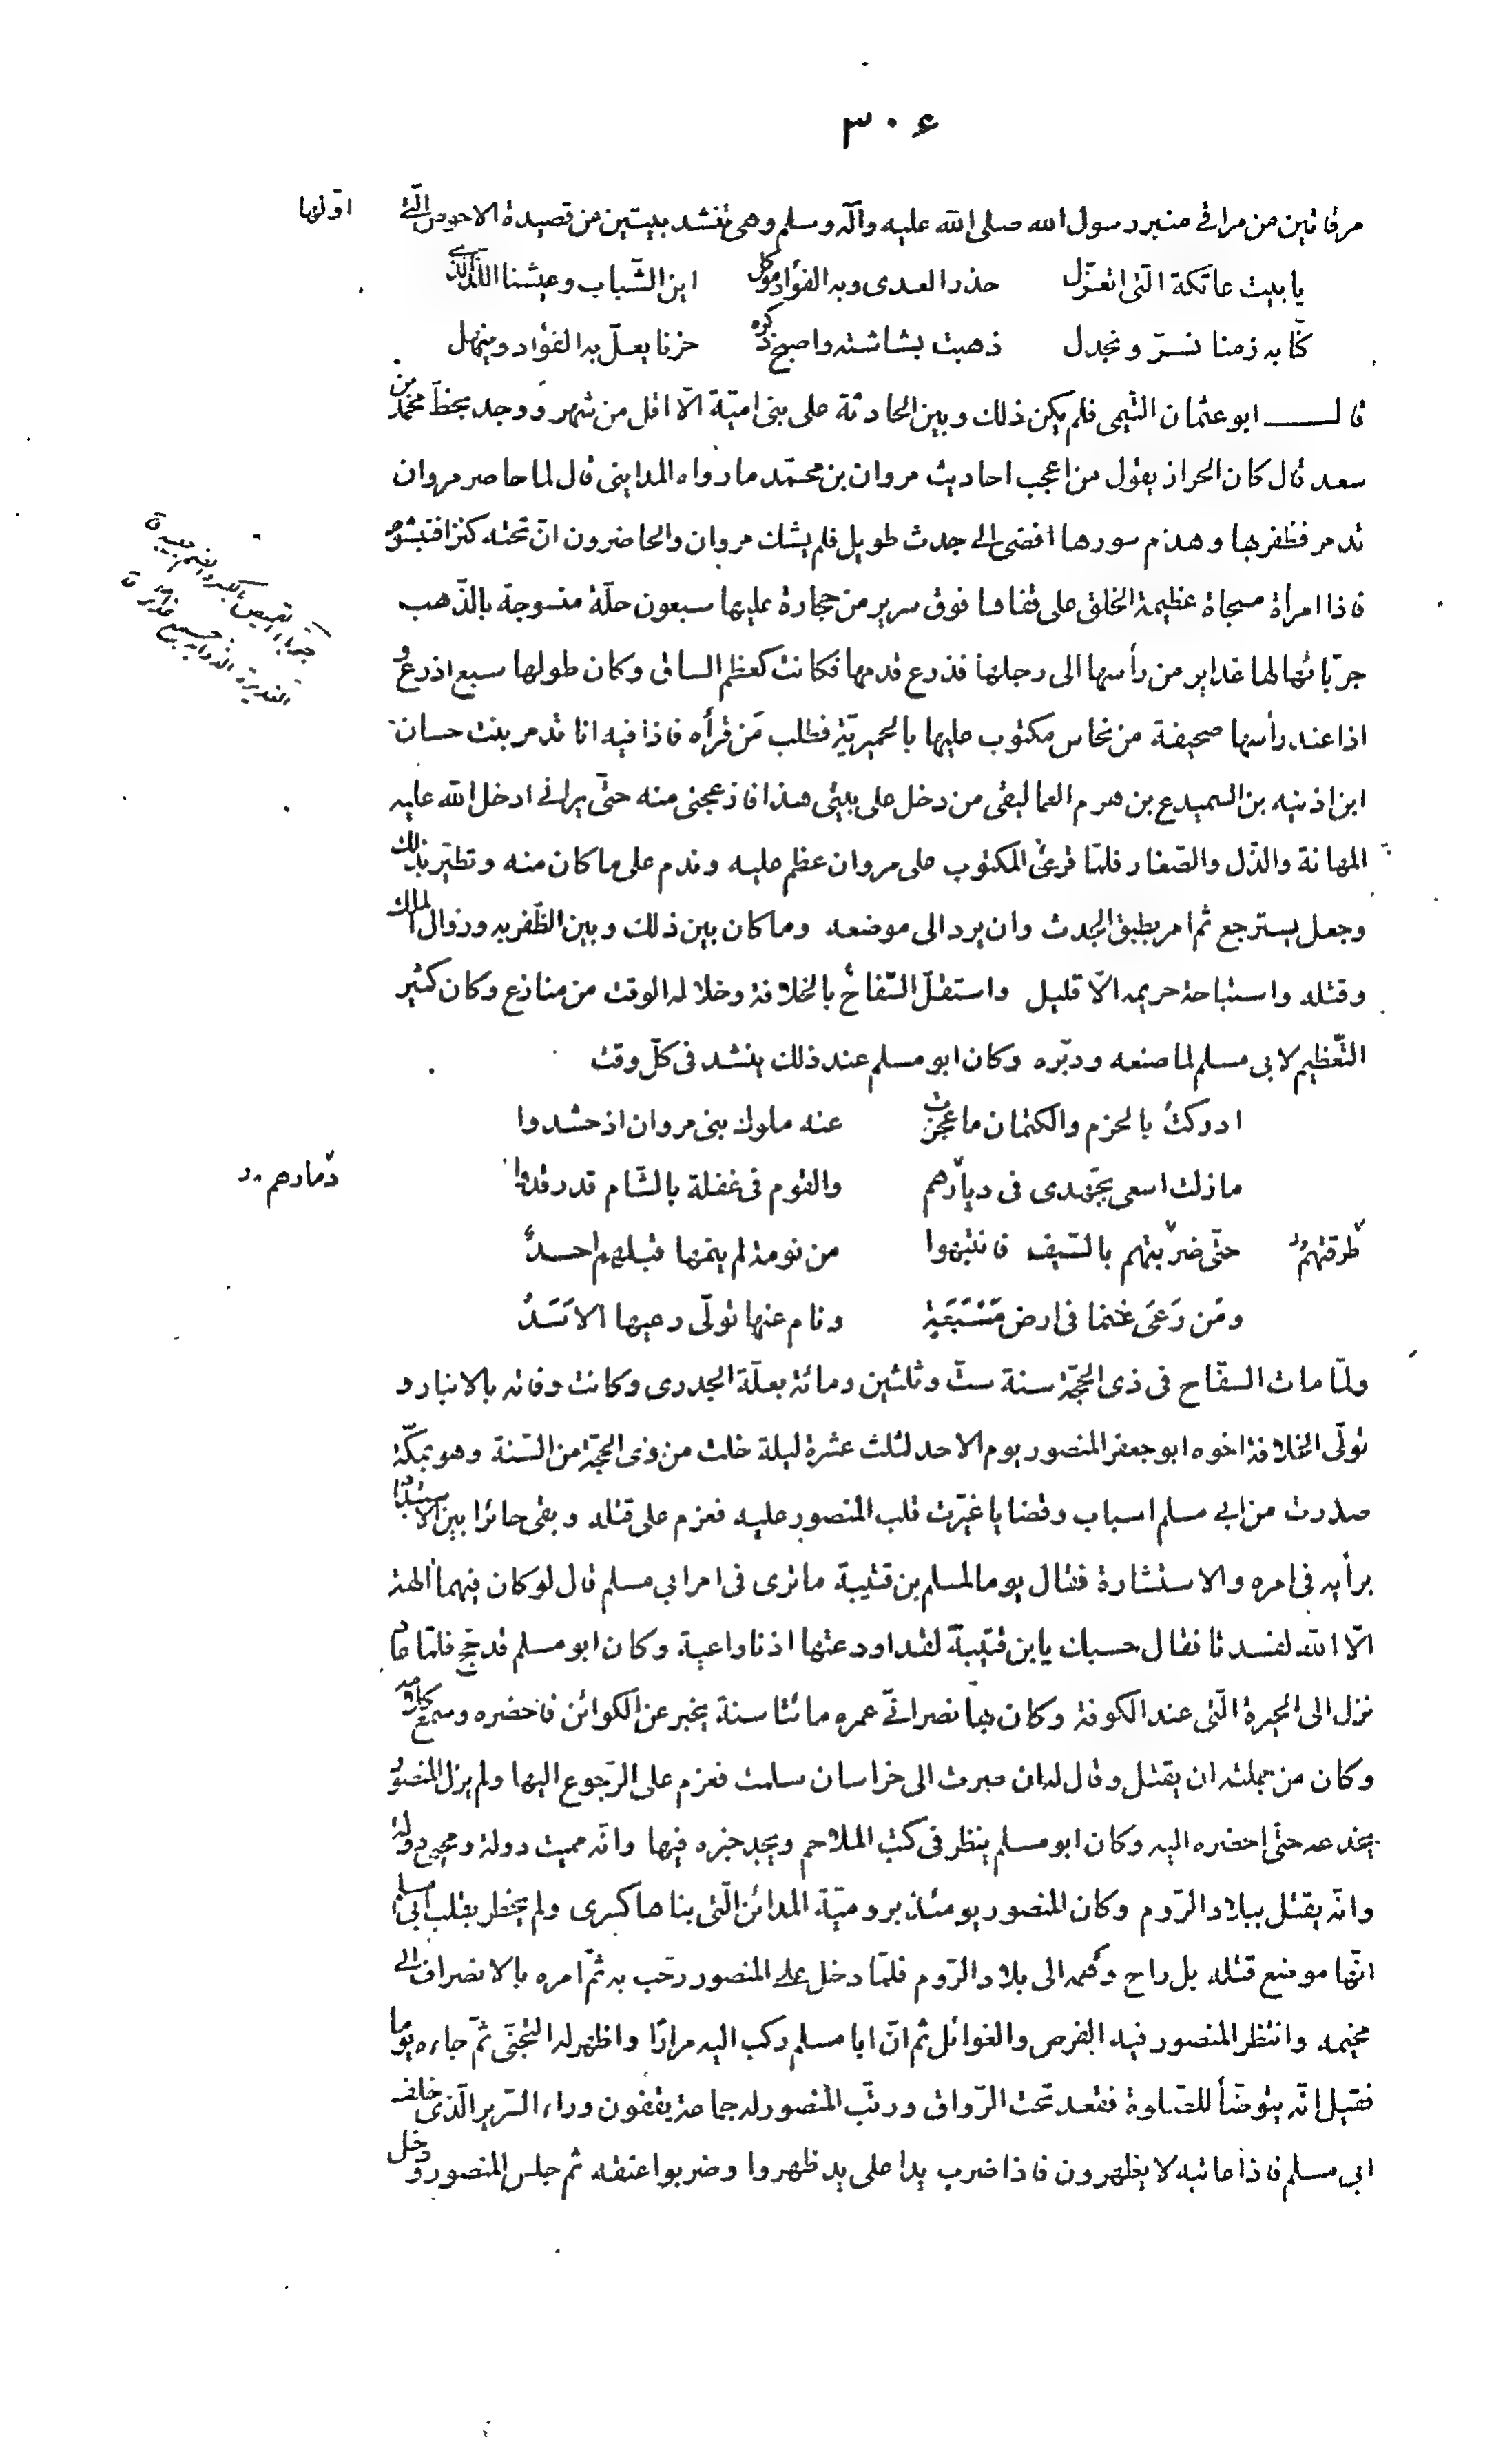 ٣٠٤
مرقاتين من مراقى منبر رسول الله صلى الله عليه وآله وسلم وهى تنشد بيتين من قصيدة الاحوص الّتى اوّلها
يا بيت عاتكة الّتى اتعزّل حذر العدى وبه الفؤاد موكّل اين الشّباب وعيشنا اللّذّ الّذى
كنّا به زمنا نسرّ ونجدل ذهبت بشاشته واصبح ذكره حزنا يعلّ به الفؤاد وينهل
قال ابو عثمان التيمى فلم يكن ذلك وبين الحادثة على بنى اميّة الّا اقل من شهر ووجد بخطّ محمّد بن
سعد قال كان الحراز يقول من اعجب احاديث مروان بن محمّد ما رواه المداينى قال لما حاصر مروان
تدمر فظفر بها وهدم سورها افضى الى جدث طويل فلم يشك مروان والحاضرون انّ تحته كنزا فنبشوه
فاذا امرأة مسجاة عظيمة الخلق على قفاها فوق سرير من حجارة عليها سبعون حلّة منسوجة بالذّهب
جربّانها لها غداير من رأسها الى رجلها فذرع قدمها فكانت كعظم الساق وكان طولها سبع اذرع و
اذا عند رأسها صحيفة من نحاس مكتوب عليها بالحميريّة فطلب مَن قرأه فاذا فيه انا تدمر بنت حسان
ابن اذنيه بن السميدع بن هرم العماليقى من دخل على بيتى هذا فازعجنى منه حتّى يرانى ادخل الله عليه
المهانة والذّل والصّغار فلمّا قرئ المكتوب على مروان عظم عليه وندم على ما كان منه وتطيّر بذلك
وجعل يسترجع ثم امر بطبق الجدث وان يرد الى موضعه وما كان بين ذلك وبين الظّفر به وزوال الملك
وقتله واستباحة حريمه الّا قليل واستقلّ السّفاح بالخلافة وخلا له الوقت من منازع وكان كثير
التّعظيم لابى مسلم لما صنعه ودبّره وكان ابو مسلم عند ذلك ينشد فى كلّ وقت
ادركتُ بالحزم والكتمان ما عجزت عنه ملوك بنى مروان اذ حشدوا
ما زلت اسعى بجهدى فى ديارهم والقوم فى غفلة بالشّام قد رقدوا
دمارهم
طرقتهم حتّى ضربتهم بالسّيف فانتبهوا من نومة لم ينمها قبلهم احدٌ
ومَن رَعَى غنما فى ارض مَسْبَعَةٍ ونام عنها تولّى رعيها الاَسَدُ
ولمّا مات السفّاح فى ذى الحجّة سنة ستّ وثلثين ومائة بعلّة الجدرى وكانت وفاته بالانبار و
تولّى الخلافة اخوه ابو جعفر المنصور يوم الاحد لثلث عشرة ليلة خلت من ذى الحجّة من السّنة وهو بمكّة
صدرت من ابى مسلم اسباب وقضايا غيّرت قلب المنصور عليه فعزم على قتله وبقى حائرا بين الاستبداد
برأيه فى امره والاستشارة فقال يوما لمسلم بن قتيبة ما ترى فى امر ابى مسلم قال لو كان فيهما آلهة
الّا الله لفسدتا فقال حسبك يا بن قتيبة لقد اودعتها اذنا واعية وكان ابو مسلم قد حجّ فلمّا عاد
نزل الى الحيرة الّتى عند الكوفة وكان بها نصرانىّ عمره مائتا سنة يخبر عن الكوائن فاحضره وسمع كلامه
وكان من جملته ان يقتل وقال له ان صرت الى خراسان سلمت فعزم على الرّجوع اليها ولم يزل المنصور
يخدعه حتّى احضره اليه وكان ابو مسلم ينظر فى كتب الملاحم ويجد خبره فيها وانّه مميت دولة ومحيى دولة
وانّه يقتل ببلاد الرّوم وكان المنصور يومئذ برومّية المدائن الّتى بناها كسرى ولم يخطر بقلب ابى مسلم
انّها موضع قتله بل راح وهمه الى بلاد الرّوم فلمّا دخل على المنصور رحّب به ثمّ امره بالانصراف الى
مخيمه وانتظر المنصور فيه الفرص والغوائل ثم انّ ابا مسلم ركب اليه مرارًا واظهر له التجنّى ثمّ جاءه يوما
فقيل انّه يتوضّأ للصّلوة فقعد تحت الرّواق ورتّب المنصور له جماعة يقفون وراء السّرير الّذى خلف
ابى مسلم فاذا عاتبه لا يظهرون فاذا ضرب يدا على يد ظهروا وضربوا عنقه ثم جلس المنصور ودخل